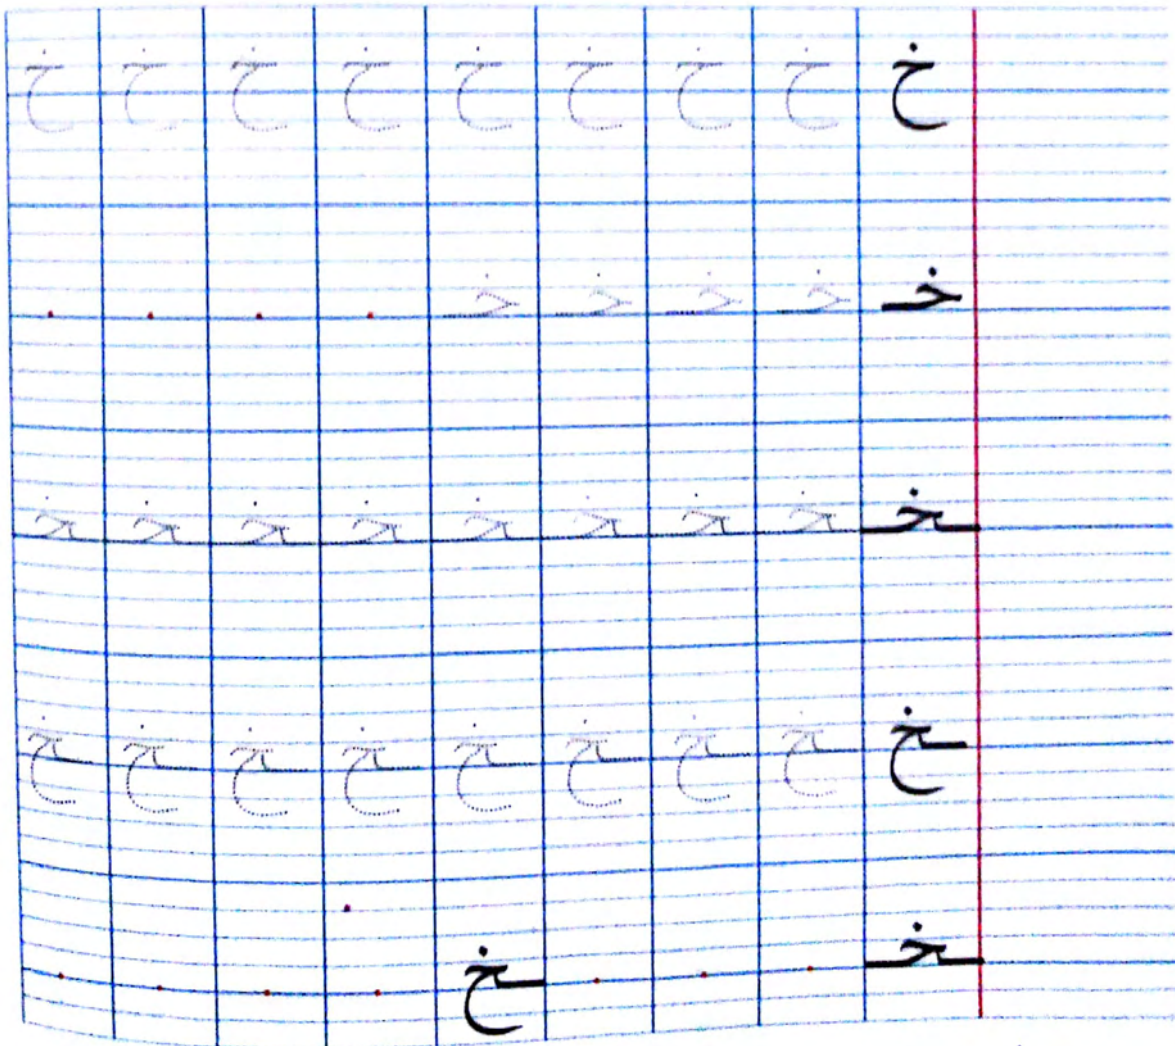 خ خ خ خ خ خ خ خ خ
خـ خـ خـ خـ خـ
ـخـ ـخـ ـخـ ـخـ ـخـ ـخـ ـخـ ـخـ ـخـ
ـخ ـخ ـخ ـخ ـخ ـخ ـخ ـخ ـخ
ـخـ ـخ